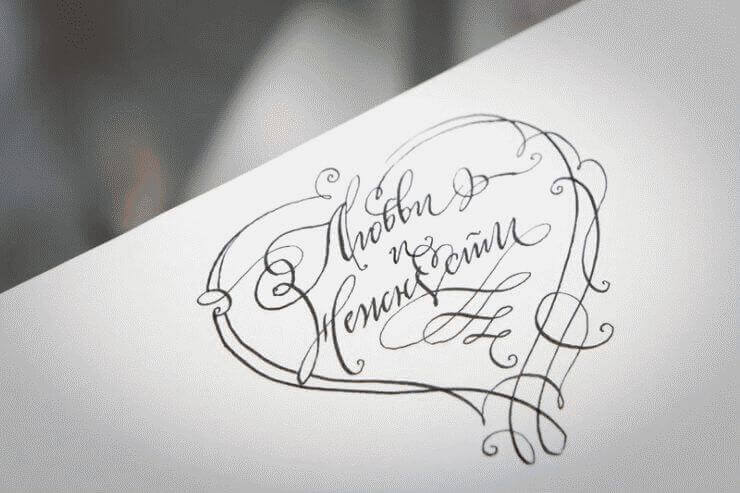 Любви
и
Нежности